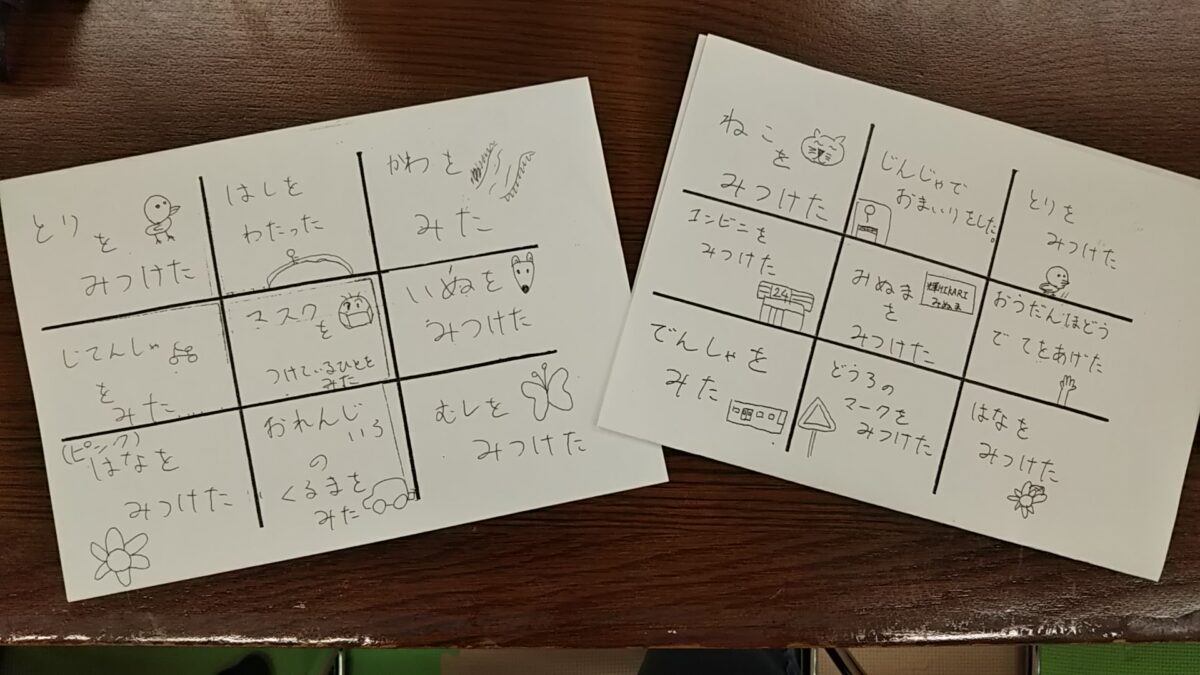 とり
を
みつけた
はしを
わたった
かわを
みた
じてんしゃ
を
みた
マスク
を
つけているひとを
みた
いぬを
みつけた
(ピンク)
はなを
みつけた
おれんじ
いろ
の
くるまを
みた
むしを
みつけた
ねこ
を
みつけた
じんじゃで
おまいりをした。
とりを
みつけた
コンビニを
みつけた
24
みぬま
を
みつけた
輝HIKARI
みぬま
おうだんほどう
で てをあげた
でんしゃを
みた
どうろの
マークを
みつけた
はなを
みつけた